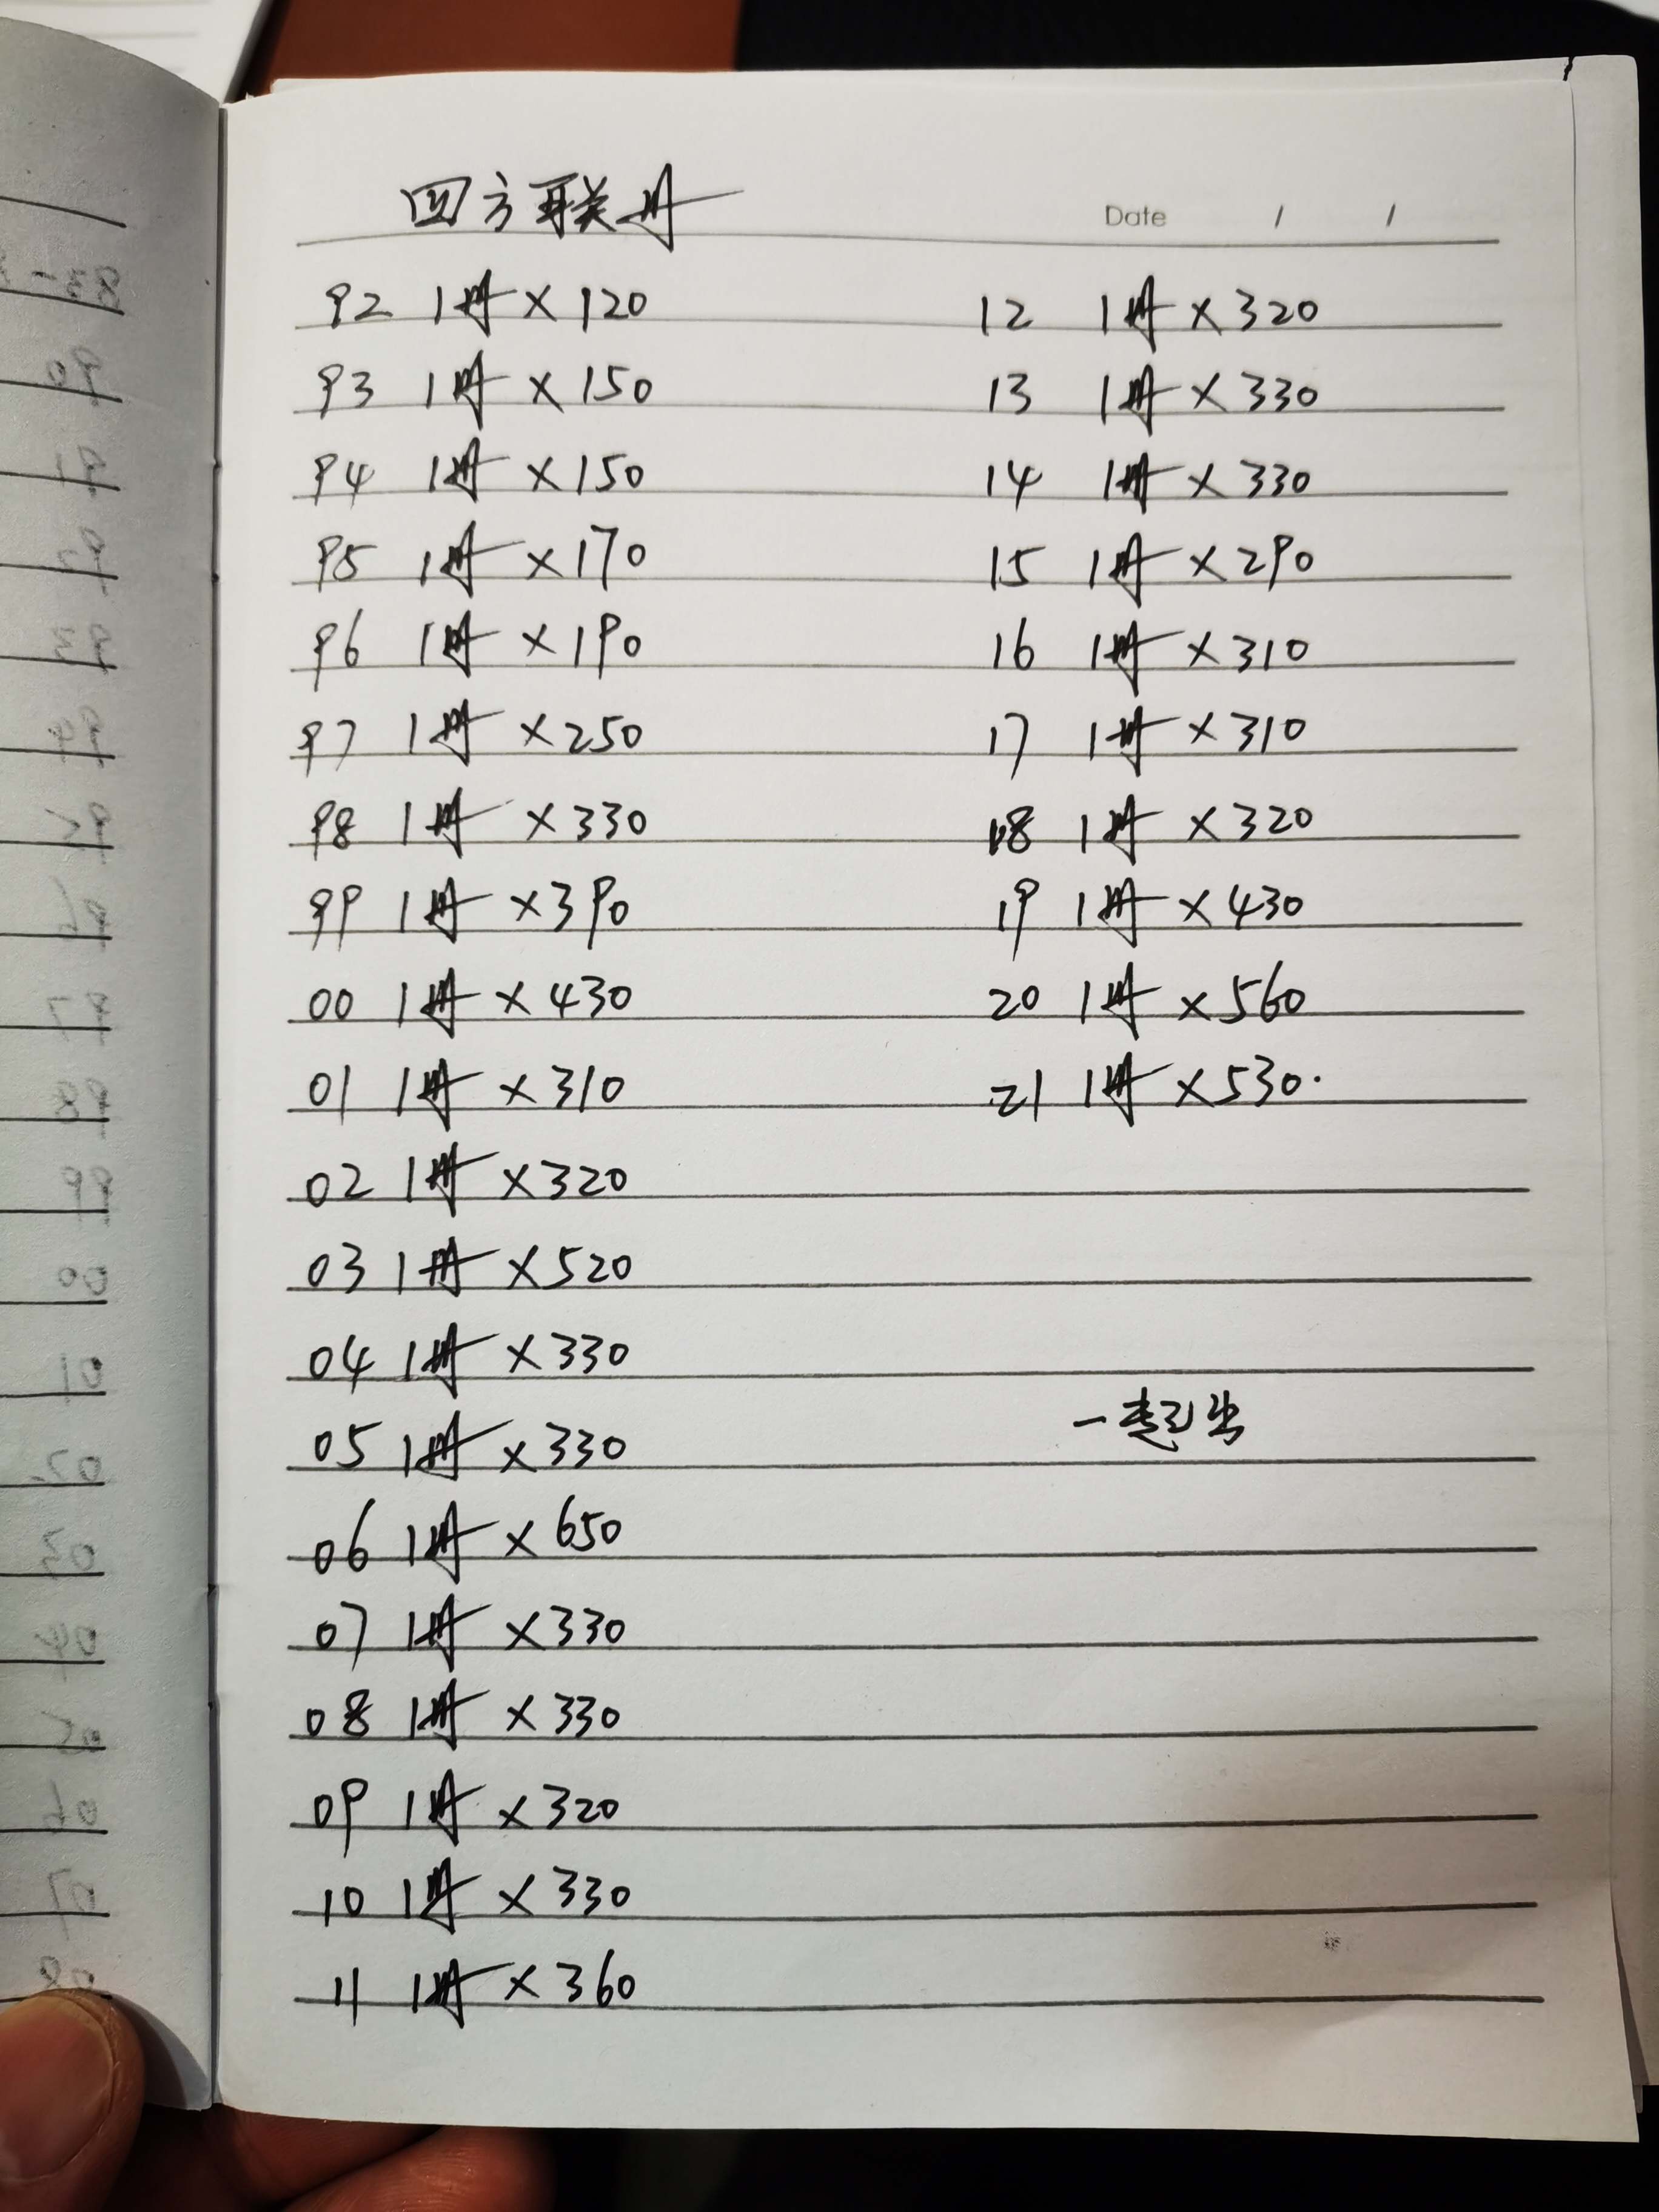 四方联册
Date / /
92 1册×120
93 1册×150
94 1册×150
95 1册×170
96 1册×190
97 1册×250
98 1册×330
99 1册×390
00 1册×430
01 1册×310
02 1册×320
03 1册×520
04 1册×330
05 1册×330
06 1册×650
07 1册×330
08 1册×330
09 1册×320
10 1册×330
11 1册×360
12 1册×320
13 1册×330
14 1册×330
15 1册×290
16 1册×310
17 1册×310
18 1册×320
19 1册×430
20 1册×560
21 1册×530.
一起出